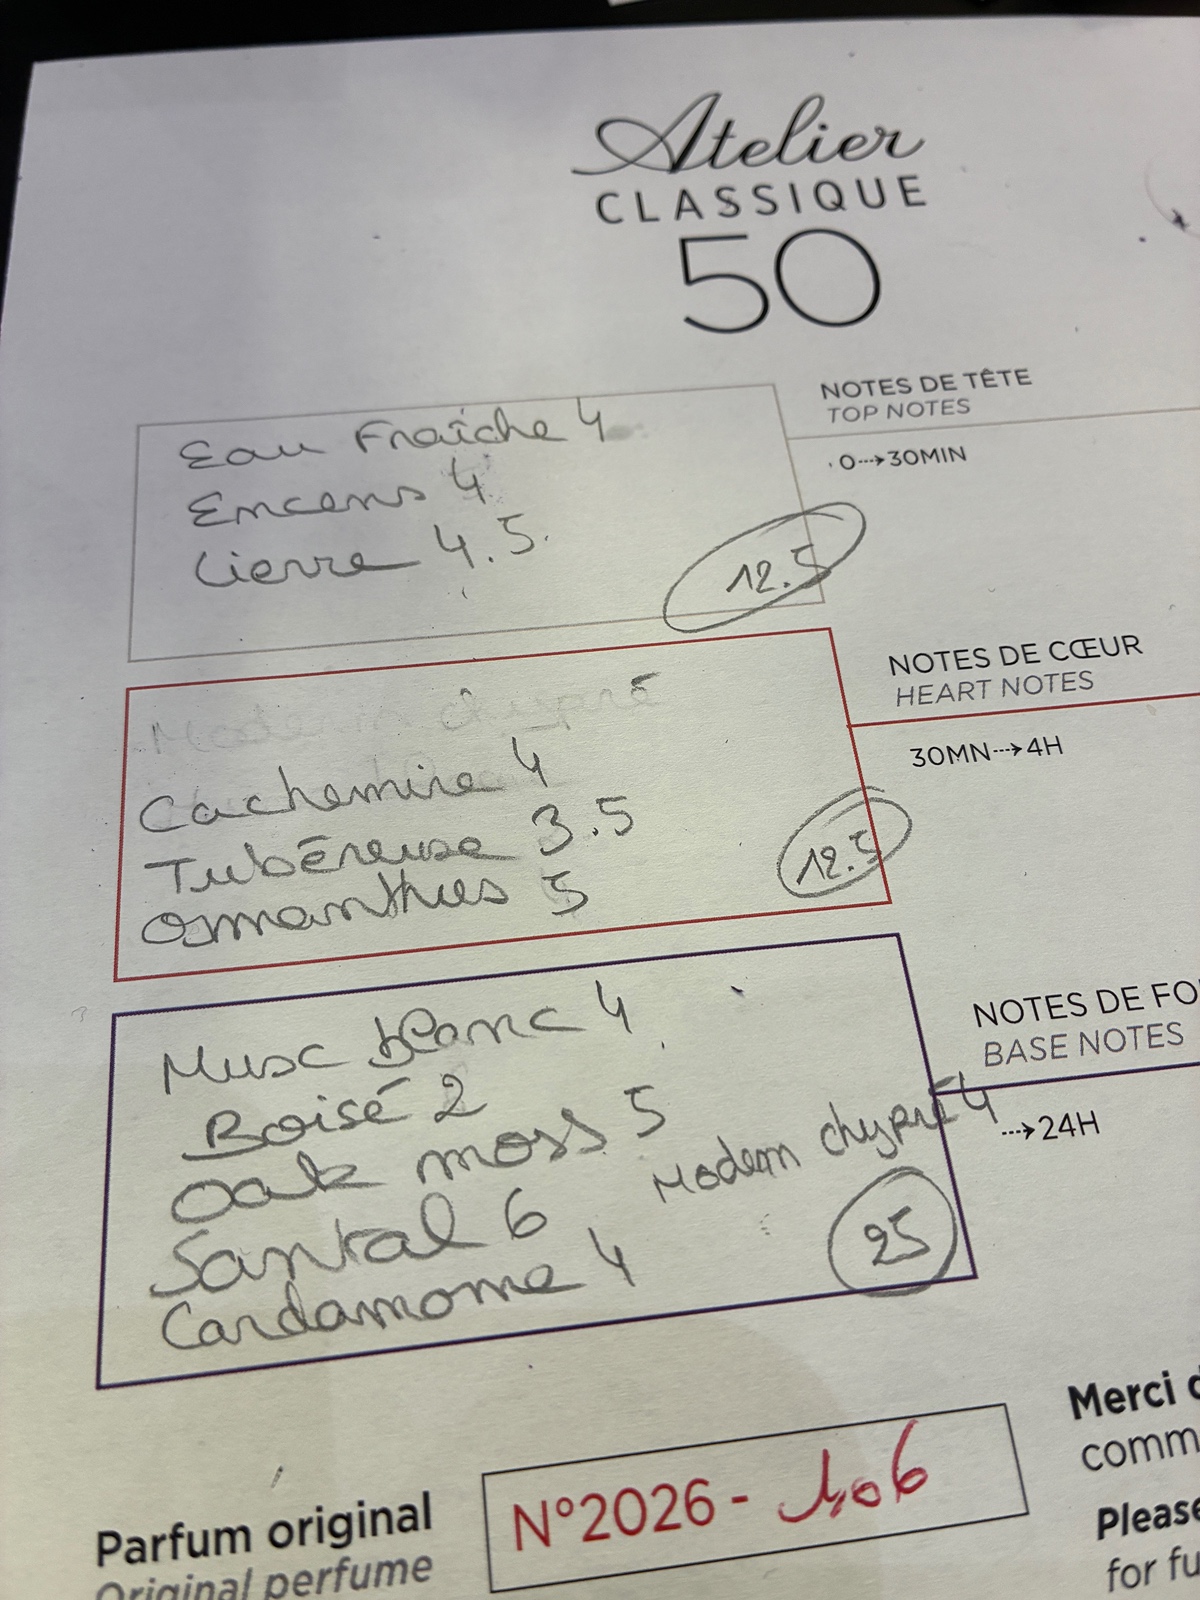 Atelier
CLASSIQUE
50
NOTES DE TÊTE
TOP NOTES
0⇢30MIN
Eau Fraîche 4
Encens 4
Lierre 4.5
12.5
NOTES DE CŒUR
HEART NOTES
30MN⇢4H
Modern chypré
Cachemire 4
Tubéreuse 3.5
Osmanthus 5
12.5
NOTES DE FO
BASE NOTES
⇢24H
Musc blanc 4
Boisé 2
Oak moss 5
Modern chypré 4
Santal 6
Cardamome 4
25
Parfum original
Original perfume
N°2026 - 106
Merci d
comm
Please
for fu